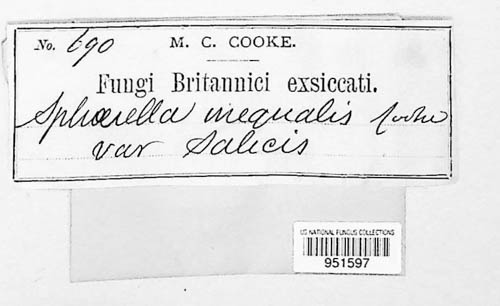 No. 690 M. C. COOKE.
Fungi Britannici exsiccati.
Sphærella inequalis Cooke
var Salicis
US NATIONAL FUNGUS COLLECTIONS
951597